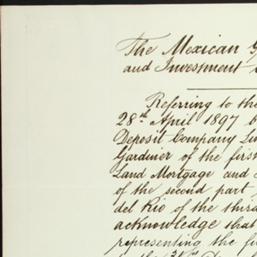 The Mexican
and Investment
Referring to the
28th April 1897
Deposit Company
Gardiner of the first
Land Mortgage and
of the second part
del Rio of the third
acknowledge that
representing the